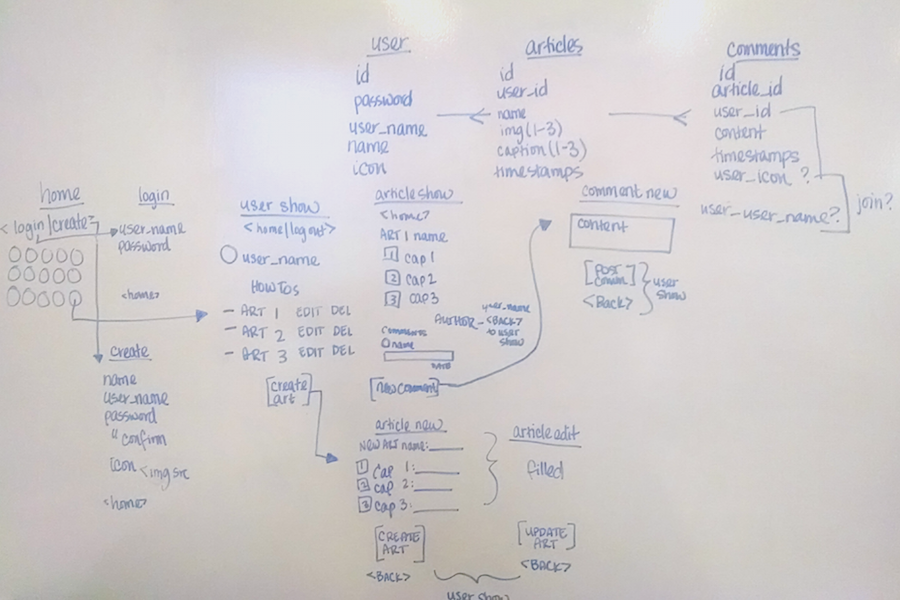 user
id
password
user_name
name
icon
articles
id
user_id
name
img(1-3)
caption(1-3)
timestamps
comments
id
article_id
user_id
content
timestamps
user_icon ?
user_user_name?
join?
home
< login/create >
login
user_name
password
<home>
create
name
user_name
password
" confirm
icon < img src
<home>
user show
<home/logout>
user_name
HOWTOS
- ART 1 EDIT DEL
- ART 2 EDIT DEL
- ART 3 EDIT DEL
[create
art]
article show
<home>
ART 1 name
1 cap 1
2 cap 2
3 cap 3
user_name
AUTHOR - <BACK>
to user
show
comments
name
[new comment]
comment new
content
[POST
COMM]
<BACK>
user
show
article new
NEW ART name:
1 cap 1:
2 cap 2:
3 cap 3:
[CREATE
ART]
<BACK>
article edit
filled
[UPDATE
ART]
<BACK>
user show